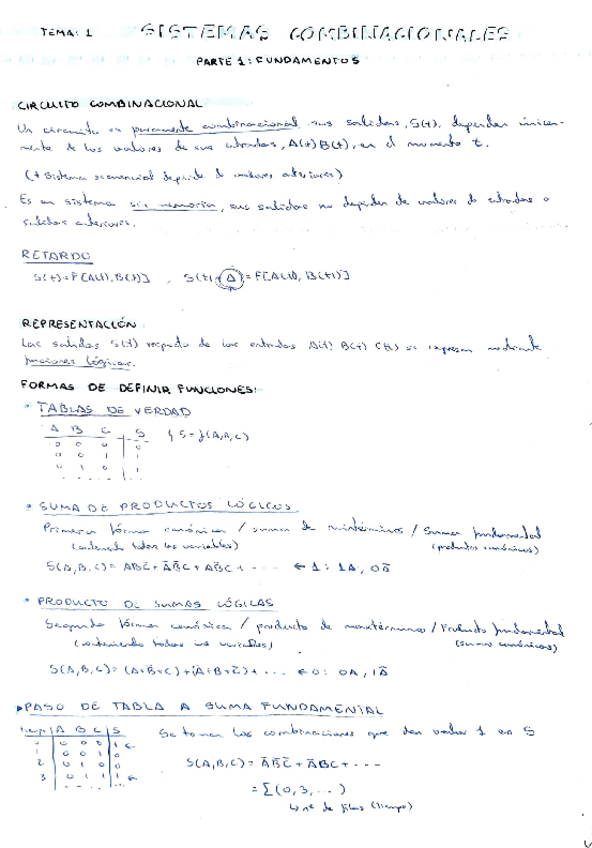 TEMA: 1 SISTEMAS COMBINACIONALES
PARTE 1: FUNDAMENTOS
CIRCUITO COMBINACIONAL
Un circuito es puramente combinacional sus salidas, S(t), dependen únicamente
mente de los valores de sus entradas, A(t) B(t), en el momento t.
(≠ Sistema secuencial depende de valores anteriores)
Es un sistema sin memoria, sus salidas no dependen de valores de entradas o
salidas anteriores.
RETARDO
S(t)=F[A(t),B(t)] , S(t+Δ)=F[A(t), B(t)]
REPRESENTACIÓN
Las salidas S(t) respecto de las entradas A(t) B(t) C(t) se expresan mediante
funciones lógicas.
FORMAS DE DEFINIR FUNCIONES:
* TABLAS DE VERDAD
A B C S
0 0 0 0
0 0 1 1
0 1 0 1
* SUMA DE PRODUCTOS LÓGICOS
Primera forma canónica / suma de mintérminos / Suma fundamental
(conteniendo todas las variables) (productos canónicos)
* PRODUCTO DE SUMAS LÓGICAS
Segunda forma canónica / producto de maxtérminos / Producto fundamental
(conteniendo todas las variables) (sumas canónicas)
PASO DE TABLA A SUMA FUNDAMENTAL
A B C S Se toman las combinaciones que dan valor 1 en S
0 0 0 0 1
1 0 0 1 0
2 0 1 0 0
3 0 1 1 1
= Σ(0,3,...)
↳ nº de filas (tiempo)